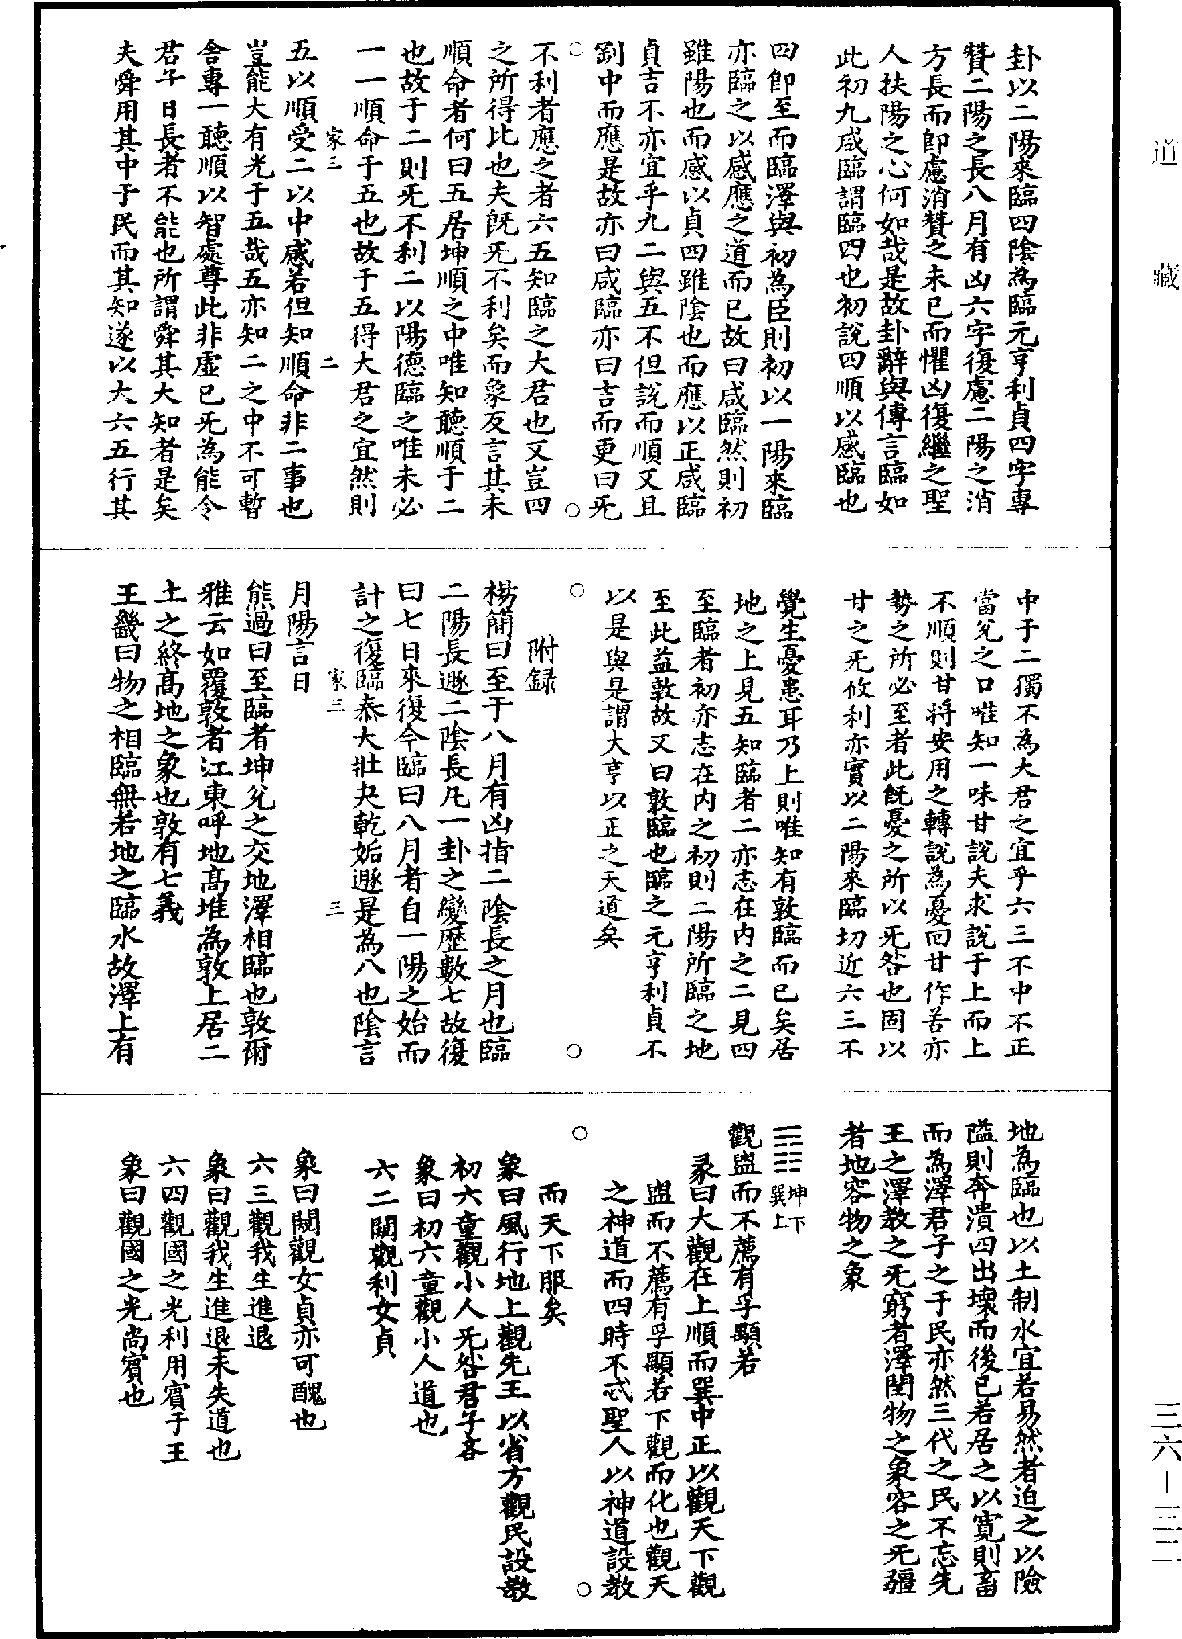 道藏
卦以二陽來臨四陰為臨元亨利貞四字專
贊二陽之長八月有凶六字復慮二陽之消
方長而即慮消贊之未已而懼凶復繼之聖
人扶陽之心何如哉是故卦辭與傳言臨如
此初九咸臨謂臨四也初說四順以感臨也
四即至而臨澤與初為臣則初以一陽來臨
亦臨之以感應之道而已故曰咸臨然則初
雖陽也而感以貞四雖陰也而應以正咸臨
貞吉不亦宜乎九二與五不但說而順又且
剛中而應是故亦曰咸臨亦曰吉而更曰旡
不利者應之者六五知臨之大君也又豈四
之所得比也夫既旡不利矣而象反言其未
順命者何曰五居坤順之中唯知聽順于二
也故于二則旡不利二以陽德臨之唯未必
一一順命于五也故于五得大君之宜然則
家三 二
五以順受二以中感若但知順命非二事也
豈能大有光于五哉五亦知二之中不可暫
舍專一聽順以智處尊此非虛己旡為能令
君子日長者不能也所謂舜其大知者是矣
夫舜用其中于民而其知遂以大六五行其
中于二獨不為大君之宜乎六三不中不正
當兌之口唯知一味甘說夫求說于上而上
不順則甘將安用之轉說為憂回甘作苦亦
勢之所必至者此既憂之所以旡咎也固以
甘之旡攸利亦實以二陽來臨切近六三不
覺生憂患耳乃上則唯知有敦臨而已矣居
地之上見五知臨者二亦志在內之二見四
至臨者初亦志在內之初則二陽所臨之地
至此益敦故又曰敦臨也臨之元亨利貞不
以是與是謂大亨以正之天道矣
附録
楊簡曰至于八月有凶指二陰長之月也臨
二陽長遯二陰長凡一卦之變歷數七故復
曰七日來復今臨曰八月者自一陽之始而
計之復臨泰大壯夬乾姤遯是為八也陰言
月陽言日
家三 三
熊過曰至臨者坤兌之交地澤相臨也敦爾
雅云如覆敦者江東呼地高堆為敦上居二
土之終高地之象也敦有七義
王畿曰物之相臨無若地之臨水故澤上有
地為臨也以土制水宜若易然者迫之以險
隘則奔潰四出壞而後已若居之以寬則畜
而為澤君子之于民亦然三代之民不忘先
王之澤教之旡窮者澤閏物之象容之旡疆
者地容物之象
䷓坤下巽上
觀盥而不薦有孚顒若
彖曰大觀在上順而巽中正以觀天下觀
盥而不薦有孚顒若下觀而化也觀天
之神道而四時不忒聖人以神道設教
而天下服矣
象曰風行地上觀先王以省方觀民設教
初六童觀小人旡咎君子吝
象曰初六童觀小人道也
六二闚觀利女貞
象曰闚觀女貞亦可醜也
六三觀我生進退
象曰觀我生進退未失道也
六四觀國之光利用賓于王
象曰觀國之光尚賓也
三六—三二